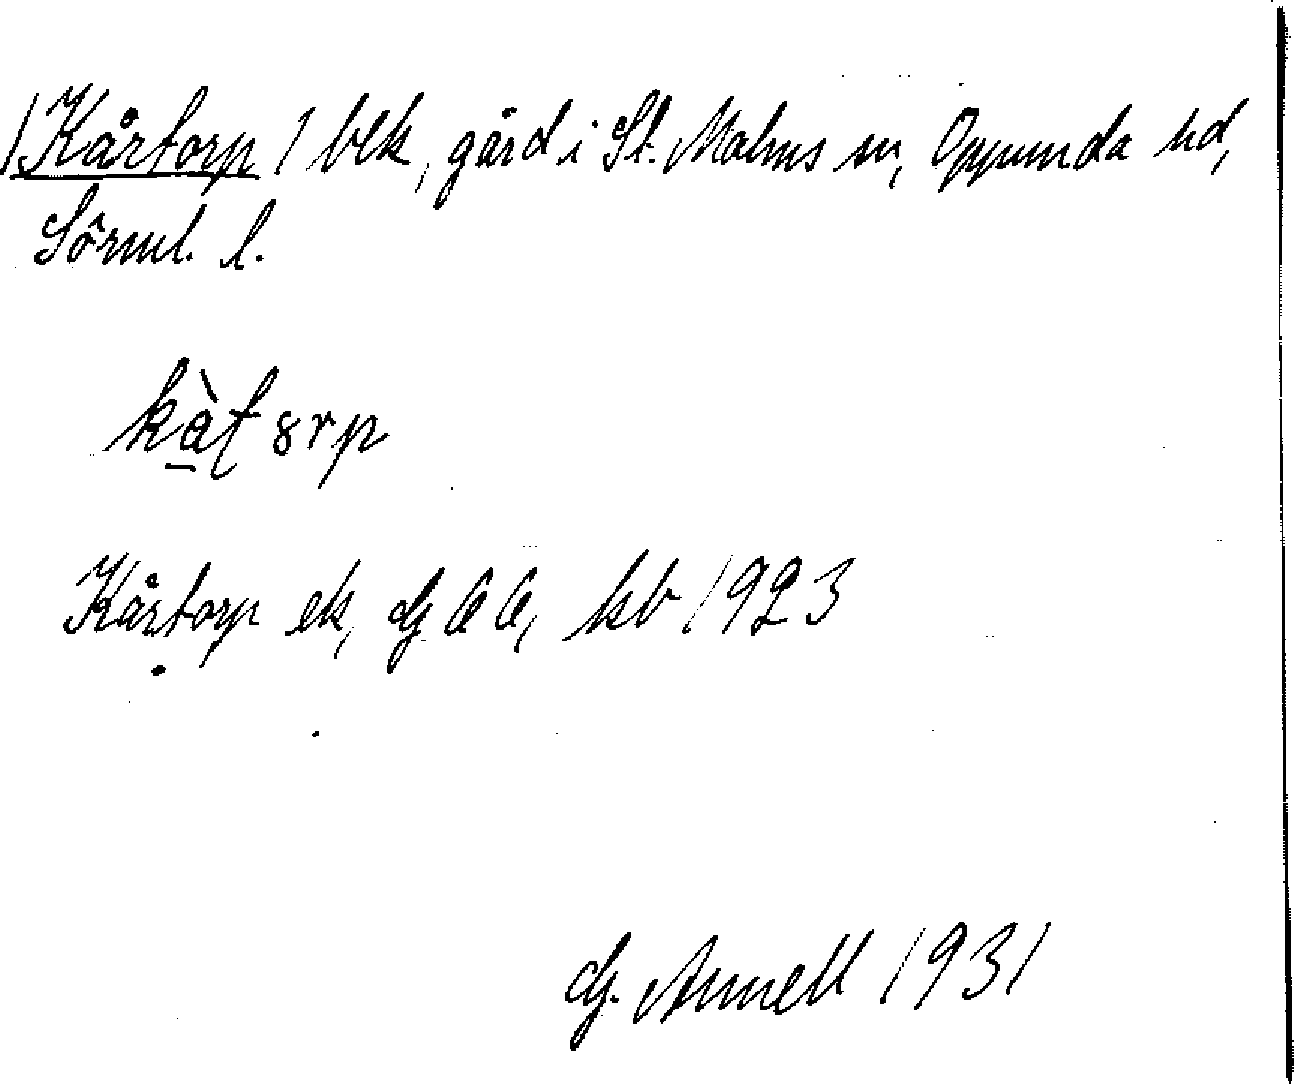 Kårtorp 1 blk, gård i St. Malms sn, Oppunda hd,
Sörml. l.
Kårtorp ek, GEC, kb 1923
G. Annell 1931